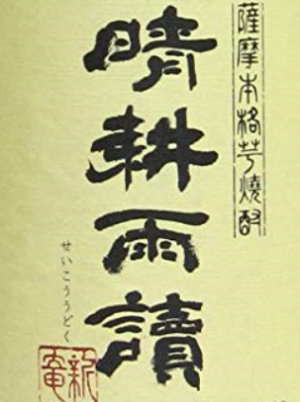 薩摩本格芋焼酎
晴耕雨讀
せいこううどく
新庵